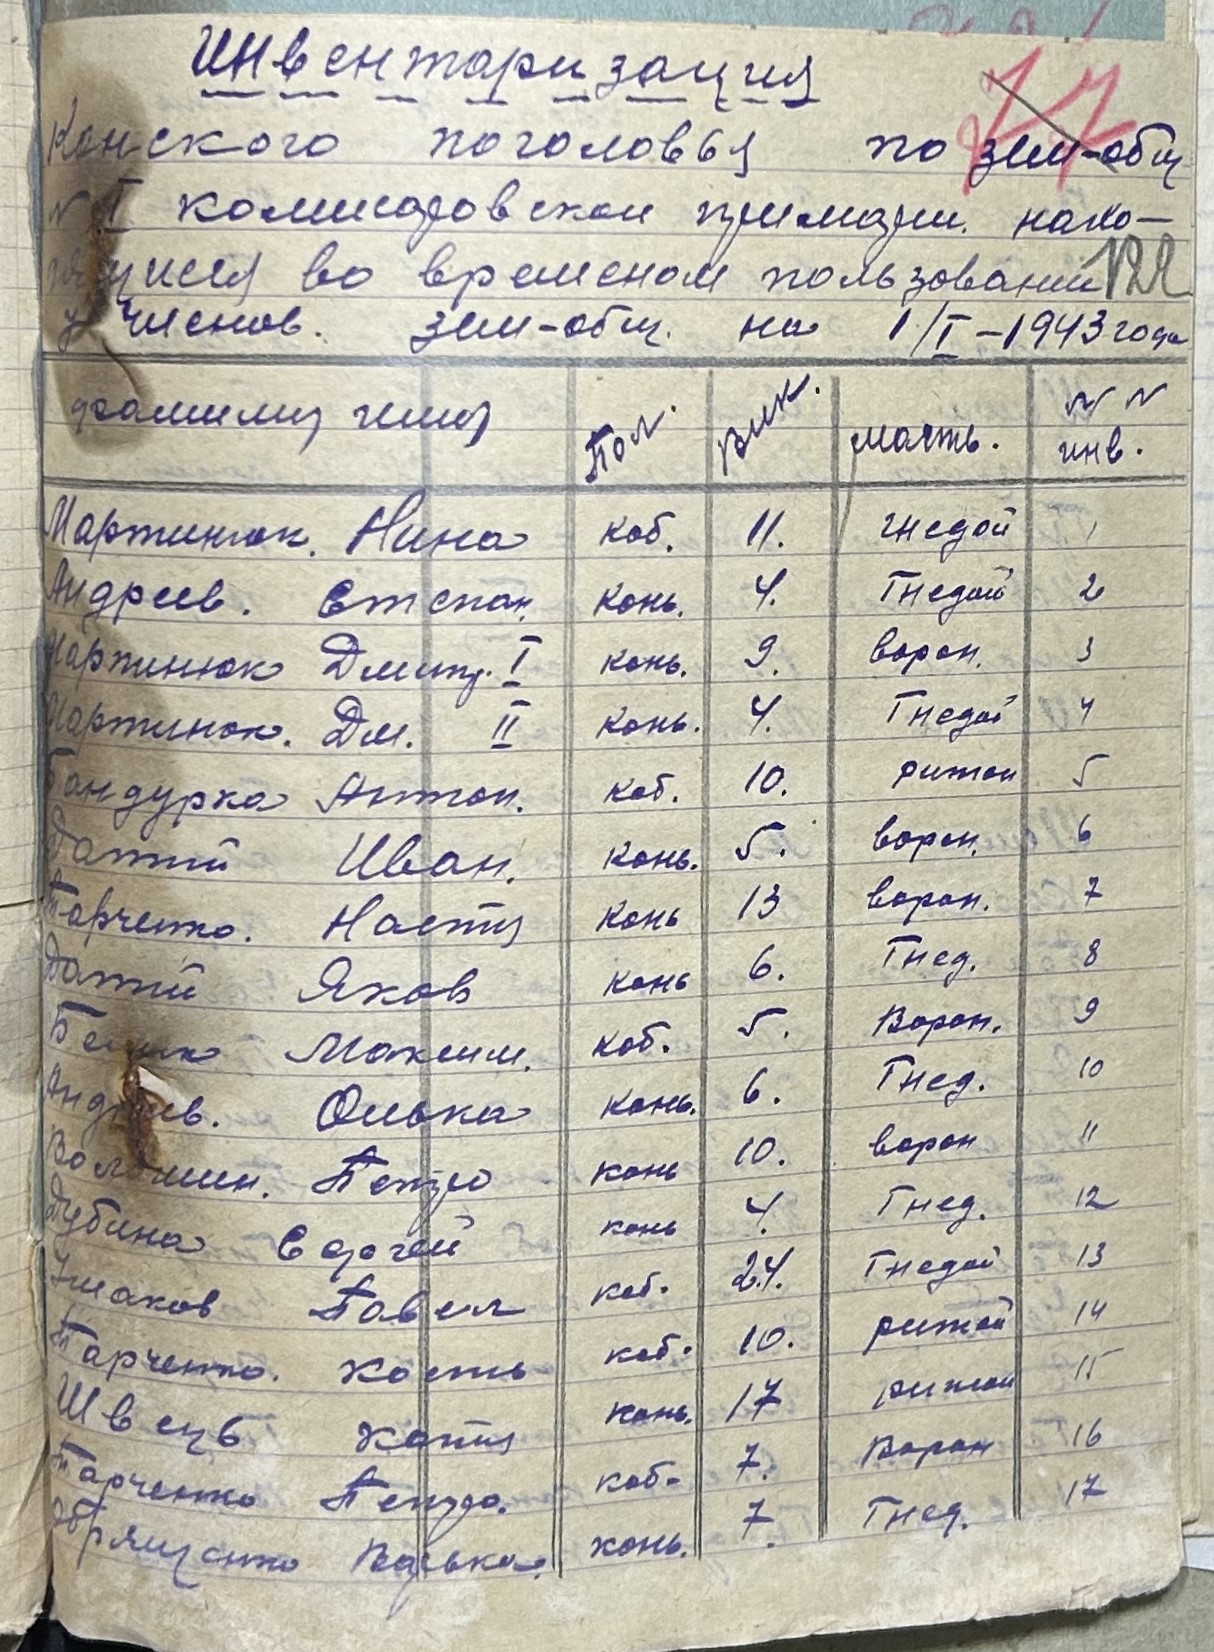 Инвентаризация
Конского поголовья по зем-общ
N I комисаровской примари. нахо-
дящиеся во временом пользовании
у членов. зем-общ. на 1/I-1943 года
122
фамилия имя Пол. Вик. масть. N N инв.
Мартинюк. Нина коб. 11. гнедой 1
Андреев. Степан. конь. 4. Гнедой 2
Мартинюк Дмитр. I конь. 9. ворон. 3
Мартинюк. Дм. II конь. 4. Гнедой 4
Бандурка Антон. коб. 10. рижой 5
Датий Иван. конь. 5. ворон. 6
Тарченко. Настя конь 13 ворон. 7
Датий Яков конь 6. Гнед. 8
Максим. коб. 5. Ворон. 9
Андреев. Олька конь. 6. Гнед. 10
Волошин. Петро конь 10. ворон 11
Дубина Сергей конь 4. Гнед. 12
Ушаков Павел коб. 24. Гнедой 13
Тарченко. Кость коб. 10. рижой 14
Швець Катя конь. 17 рижой 15
Тарченко Петро. коб. 7. Ворон 16
Васька. конь. 7. Гнед. 17